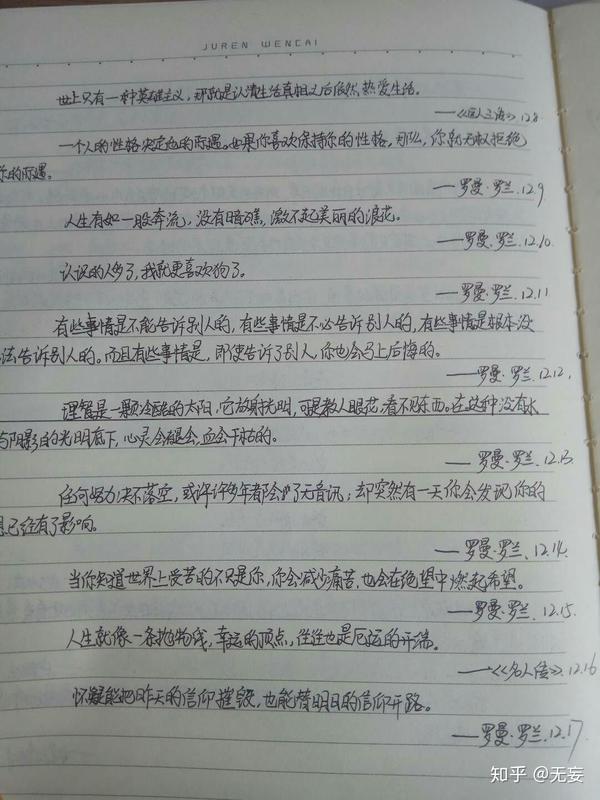 JUREN WENCAI
世上只有一种英雄主义,那就是认清生活真相之后依然热爱生活。
12.8
一个人的性格决定他的际遇。如果你喜欢保持你的性格,那么,你就无权拒绝
你的际遇。
——罗曼·罗兰.12.9
人生有如一股奔流,没有暗礁,激不起美丽的浪花。
——罗曼·罗兰.12.10
认识的人多了,我就更喜欢狗了。
——罗曼·罗兰.12.11
有些事情是不能告诉别人的,有些事情是不必告诉别人的,有些事情是根本没
法告诉别人的。而且有些事情是,即使告诉了别人,你也会马上后悔的。
——罗曼·罗兰.12.12.
理智是一颗冷酷的太阳,它放射光明,可是教人眼花,看不见东西。在这种没有水
与阴影的光明底下,心灵会褪色,血会干枯的。
——罗曼·罗兰.12.13.
任何努力决不落空,或许许多年都会了无音讯;却突然有一天你会发现你的
思已经有了影响。
——罗曼·罗兰.12.14.
当你知道世界上受苦的不只是你,你会减少痛苦,也会在绝望中燃起希望。
——罗曼·罗兰.12.15.
人生就像一条抛物线,幸运的顶点,往往也是厄运的开端。
——《名人传》.12.16
怀疑能把昨天的信仰摧毁,也能替明日的信仰开路。
——罗曼·罗兰.12.17
知乎 @无妄